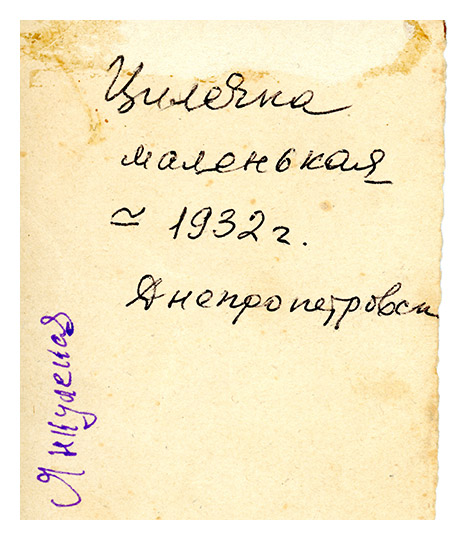 Цилечка
маленькая
≃ 1932 г.
Днепропетровск